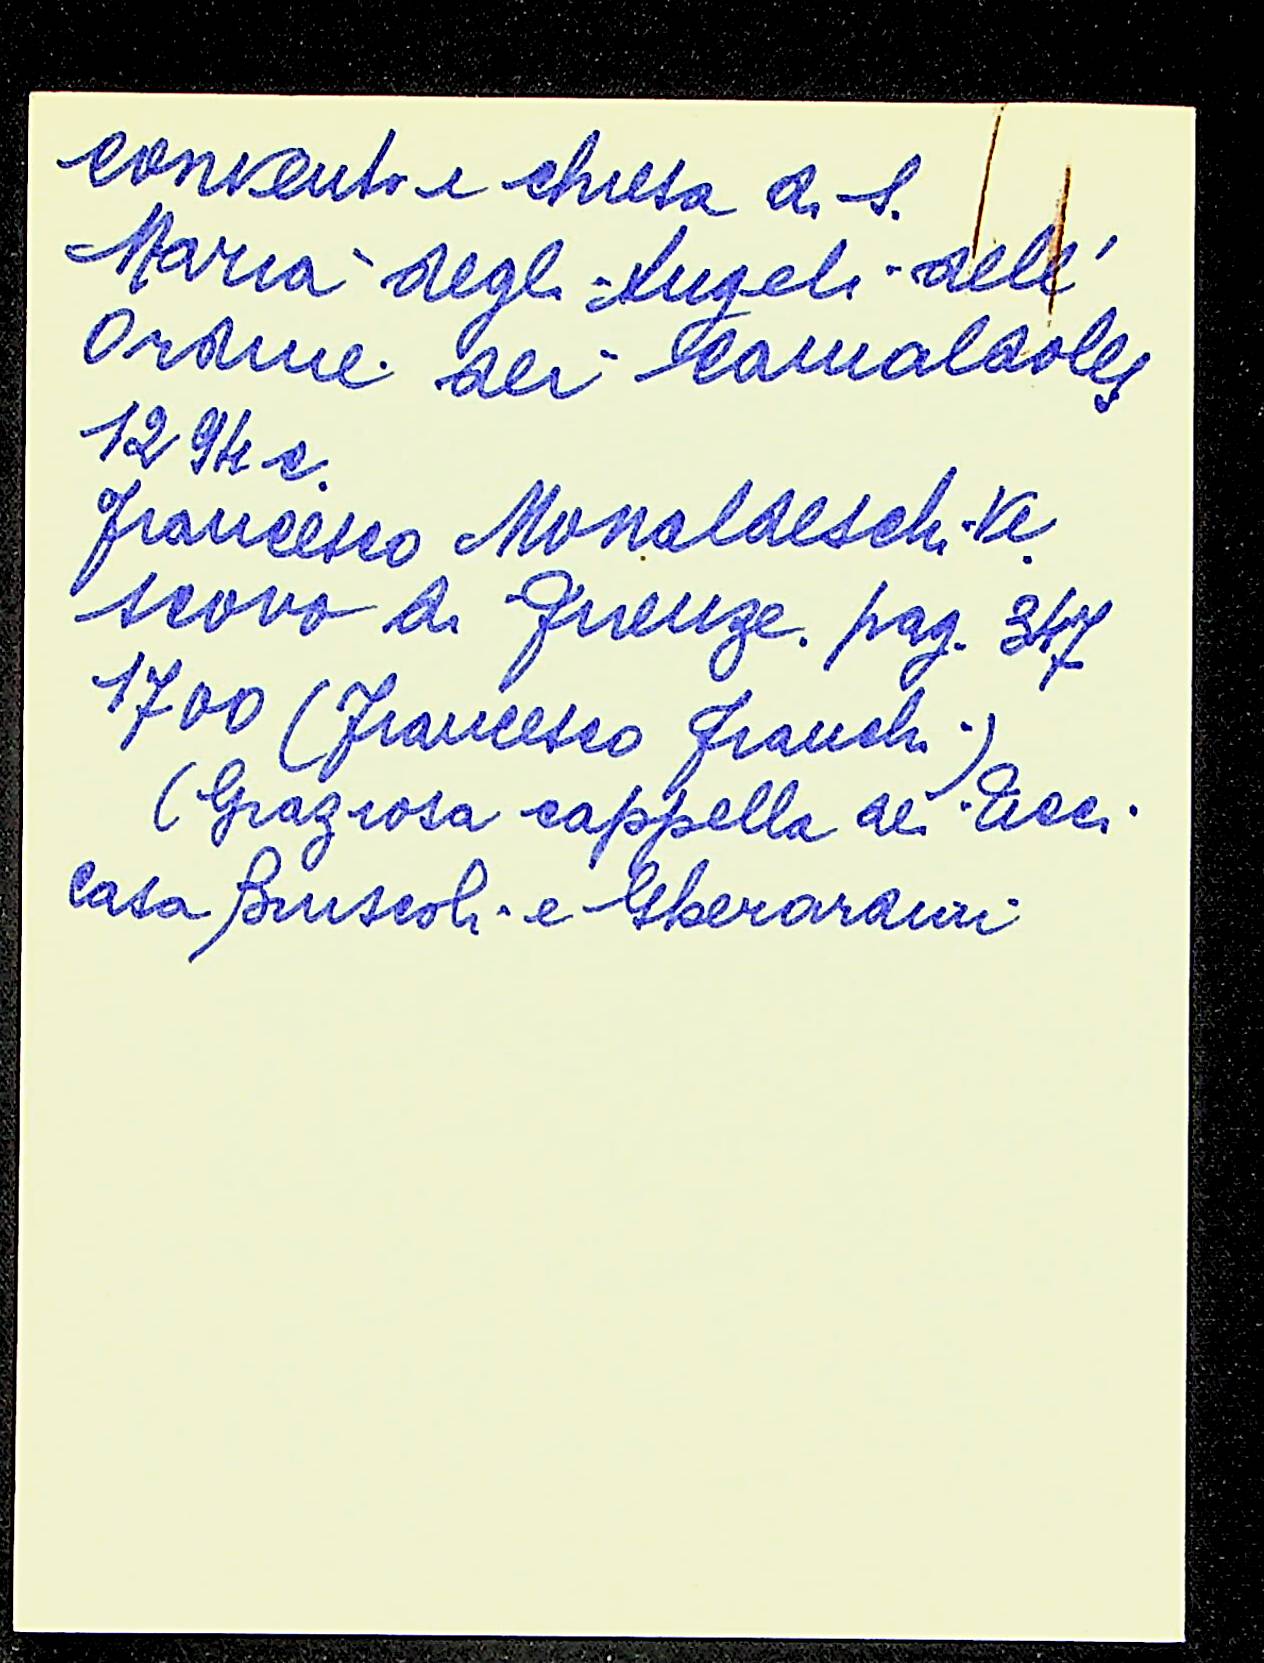 convento e chiesa di S.
Maria degli Angeli dell'
Ordine dei Camaldolesi
1294 c.
Francesco Monaldeschi Ve
scovo di Firenze. pag. 347
1700 (Francesco Franchi)
(Graziosa cappella dei Ricci
Casa Bruscoli e Gherardini